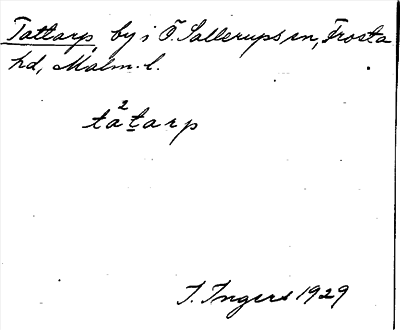 Tattarp, by i Ö. Sallerups sn, Frosta
hd, Malm. l.
ta²tarp
I. Ingers 1929